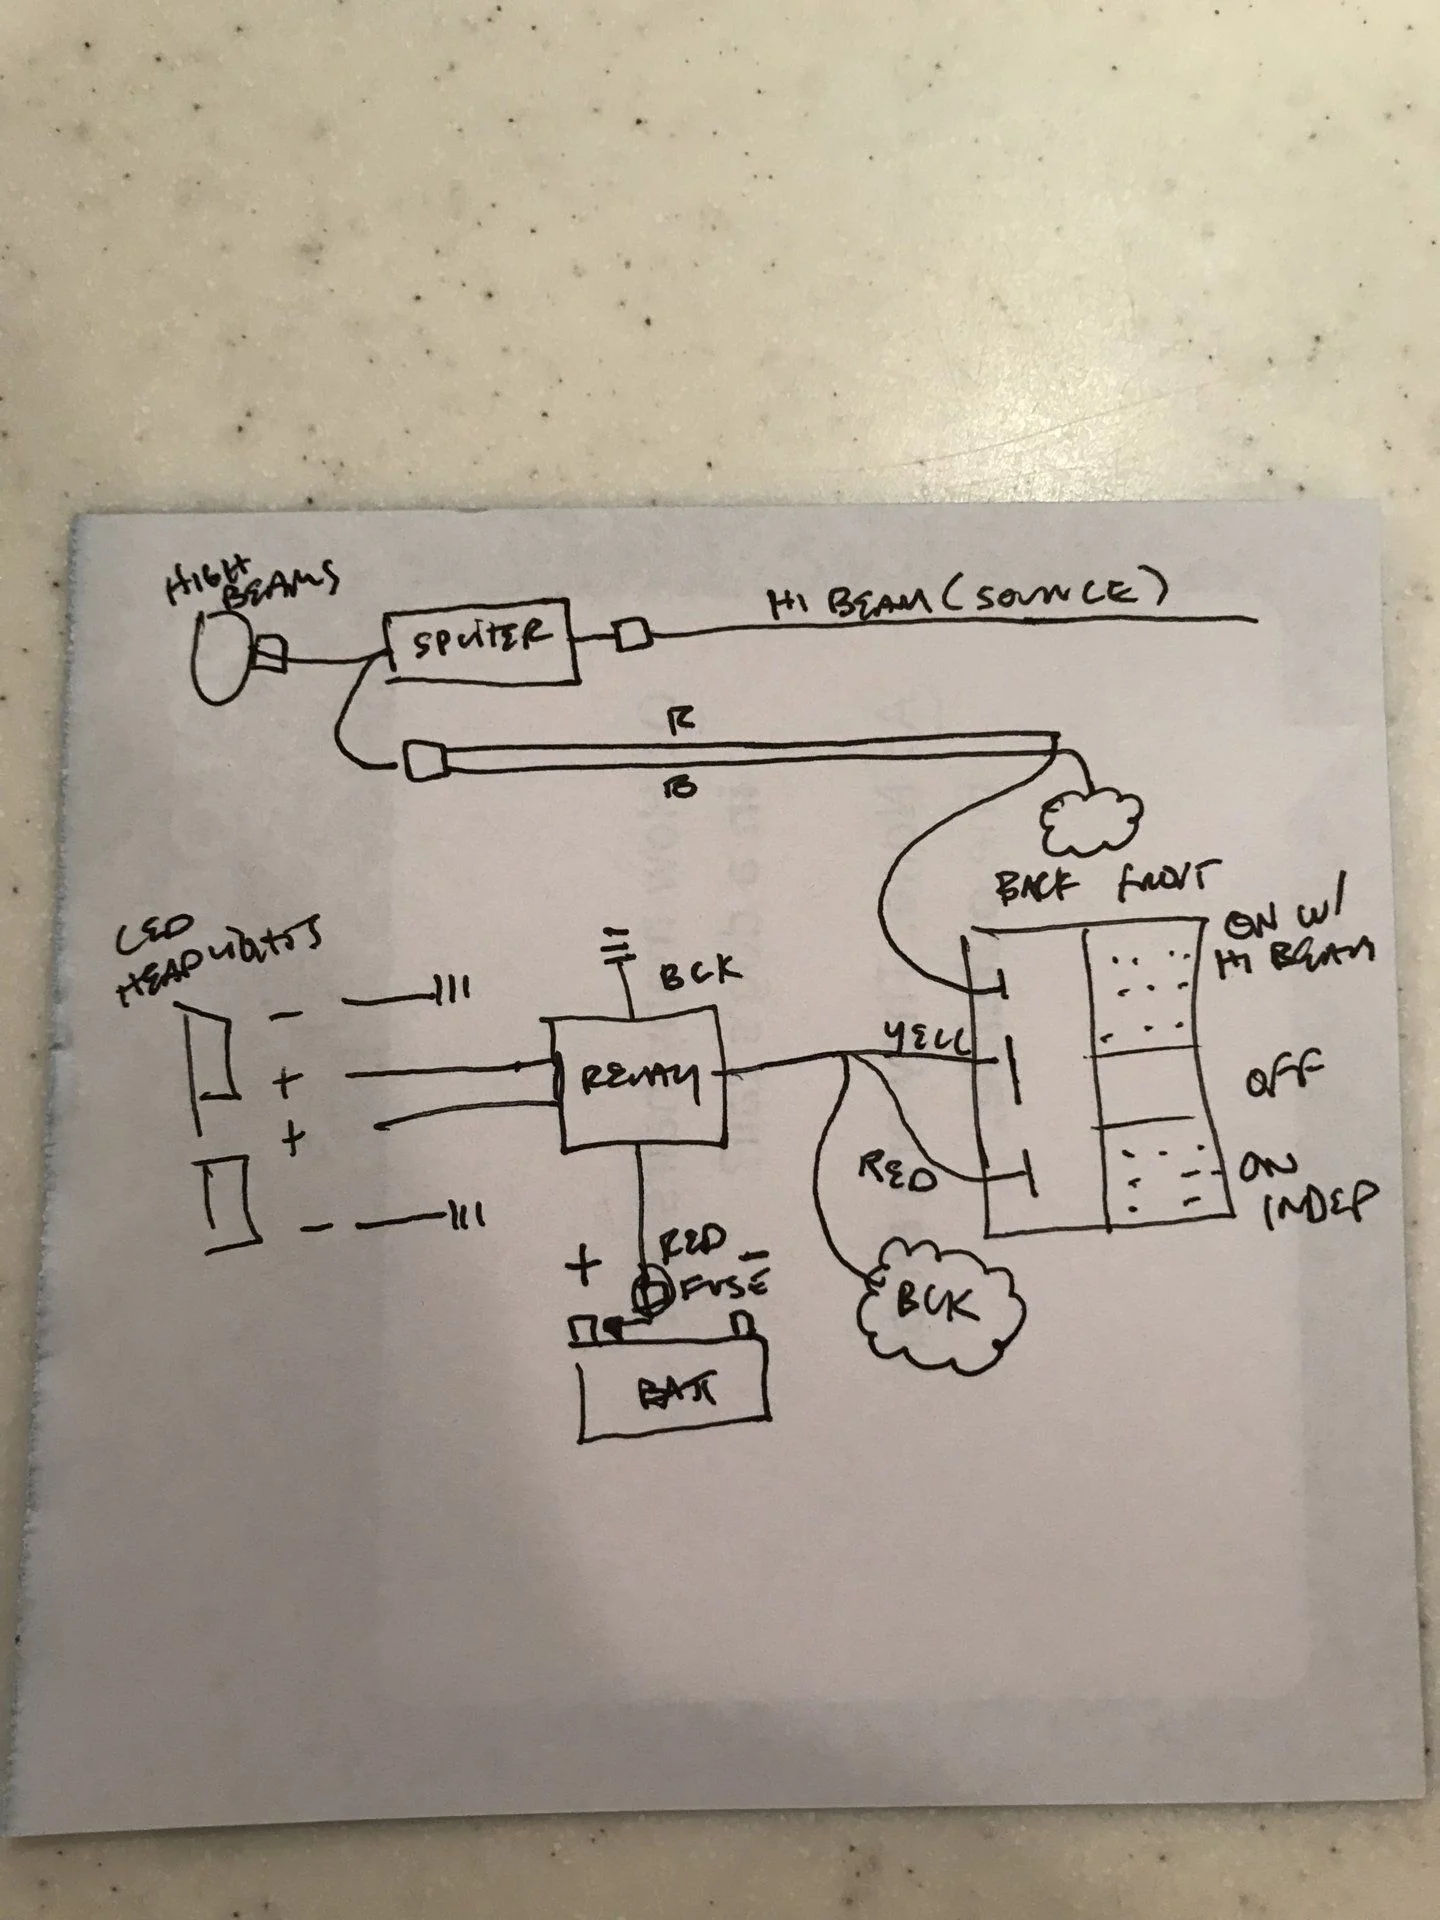 HIGH
BEAMS
SPLITER
HI BEAM (SOURCE)
R
B
BACK FRONT
ON W/
HI BEAM
LED
HEADLIGHTS
-
+
+
-
BCK
RELAY
YELL
OFF
RED
ON
INDEP
+
RED
FUSE
-
BCK
BATT